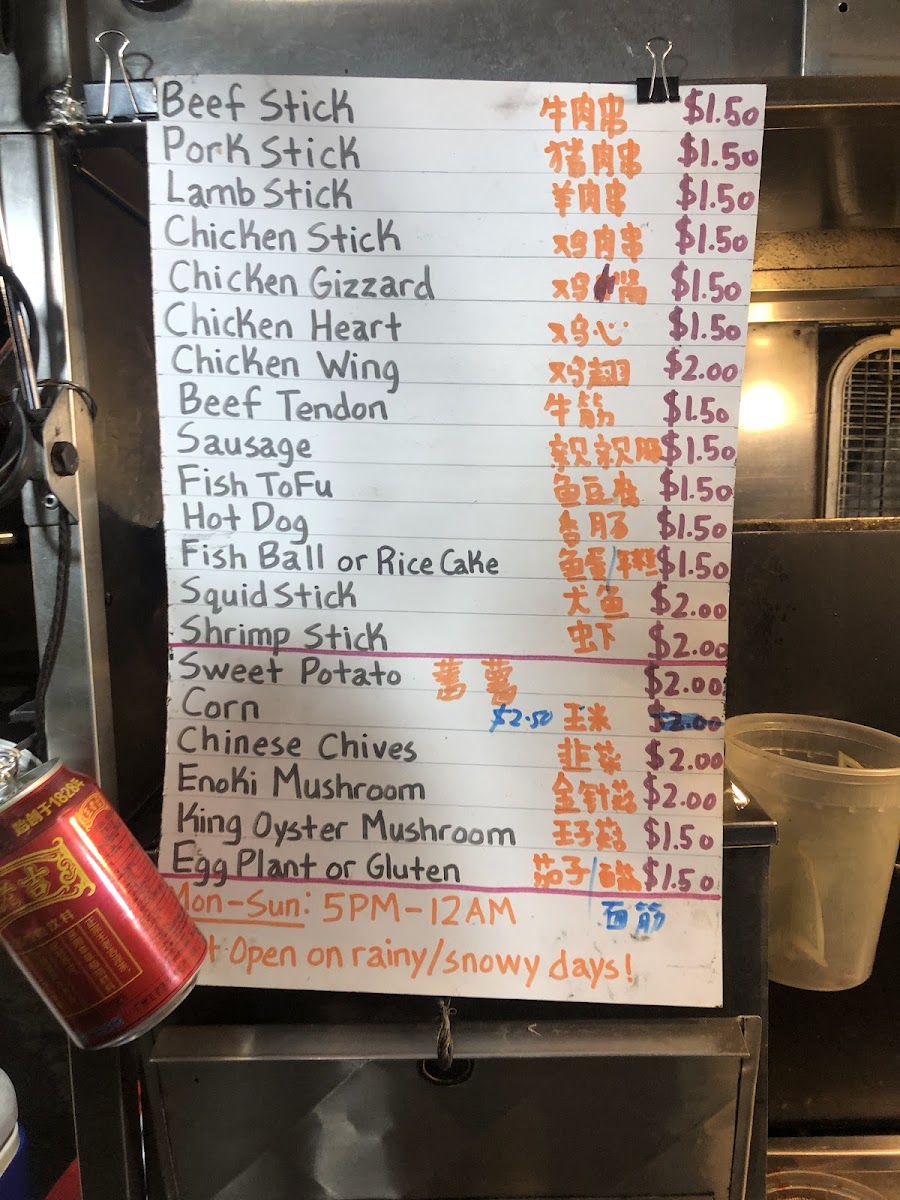 Beef Stick 牛肉串 $1.50
Pork Stick 猪肉串 $1.50
Lamb Stick 羊肉串 $1.50
Chicken Stick 鸡肉串 $1.50
Chicken Gizzard 鸡 $1.50
Chicken Heart 鸡心 $1.50
Chicken Wing 鸡翅 $2.00
Beef Tendon 牛筋 $1.50
Sausage $1.50
Fish ToFu 鱼豆 $1.50
Hot Dog 香肠 $1.50
Fish Ball or Rice Cake 鱼蛋/年糕 $1.50
Squid Stick 尤鱼 $2.00
Shrimp Stick 虫下 $2.00
Sweet Potato $2.00
Corn $2.50 玉米 $2.00
Chinese Chives 韭菜 $2.00
Enoki Mushroom 金针菇 $2.00
King Oyster Mushroom 王子菇 $1.50
Egg Plant or Gluten 茄子/ $1.50
面筋
Mon-Sun: 5PM-12AM
Open on rainy/snowy days!
始创于1828年
吉